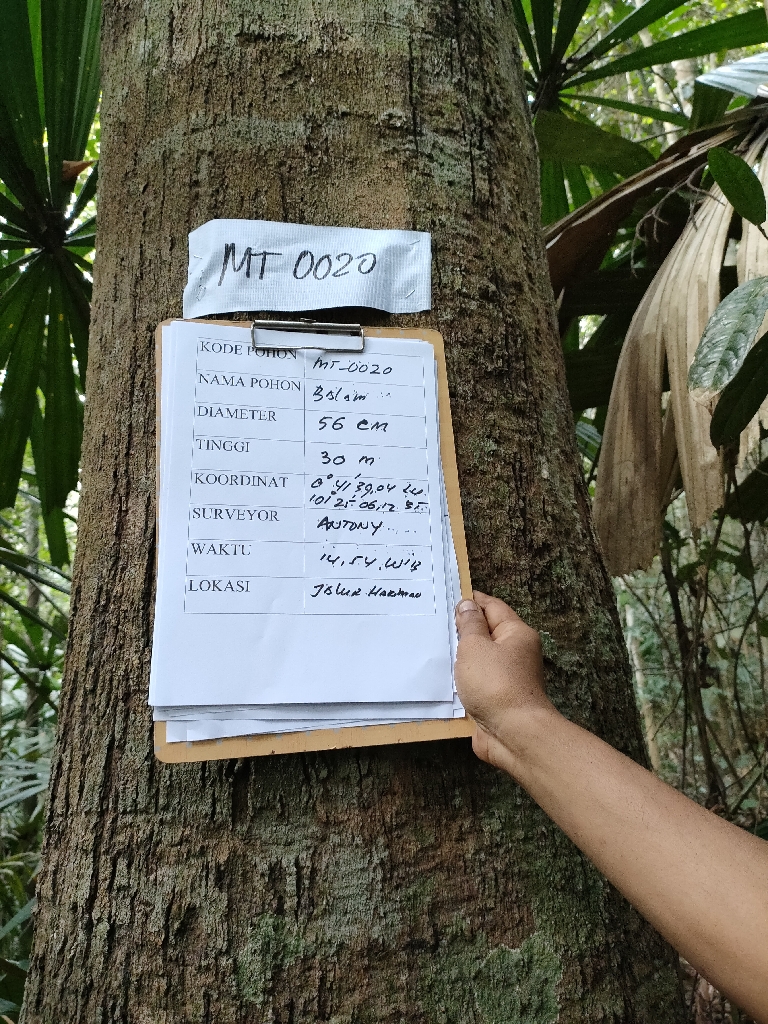 MT 0020
KODE POHON MT-0020
NAMA POHON Balam
DIAMETER 56 cm
TINGGI 30 m
KOORDINAT 0° 41' 39,04 LU
101° 25' 06,12 BT
SURVEYOR ANTONY
WAKTU 14.54.WIB
LOKASI Jalur Harimau